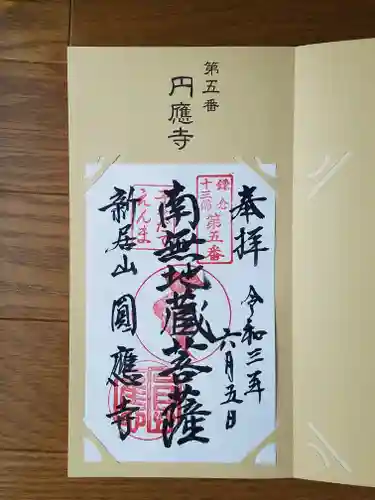 第五番
円應寺
奉拝
令和三年
六月五日
鎌倉
十三佛
第五番
南無地蔵菩薩
えんま
新居山
圓應寺